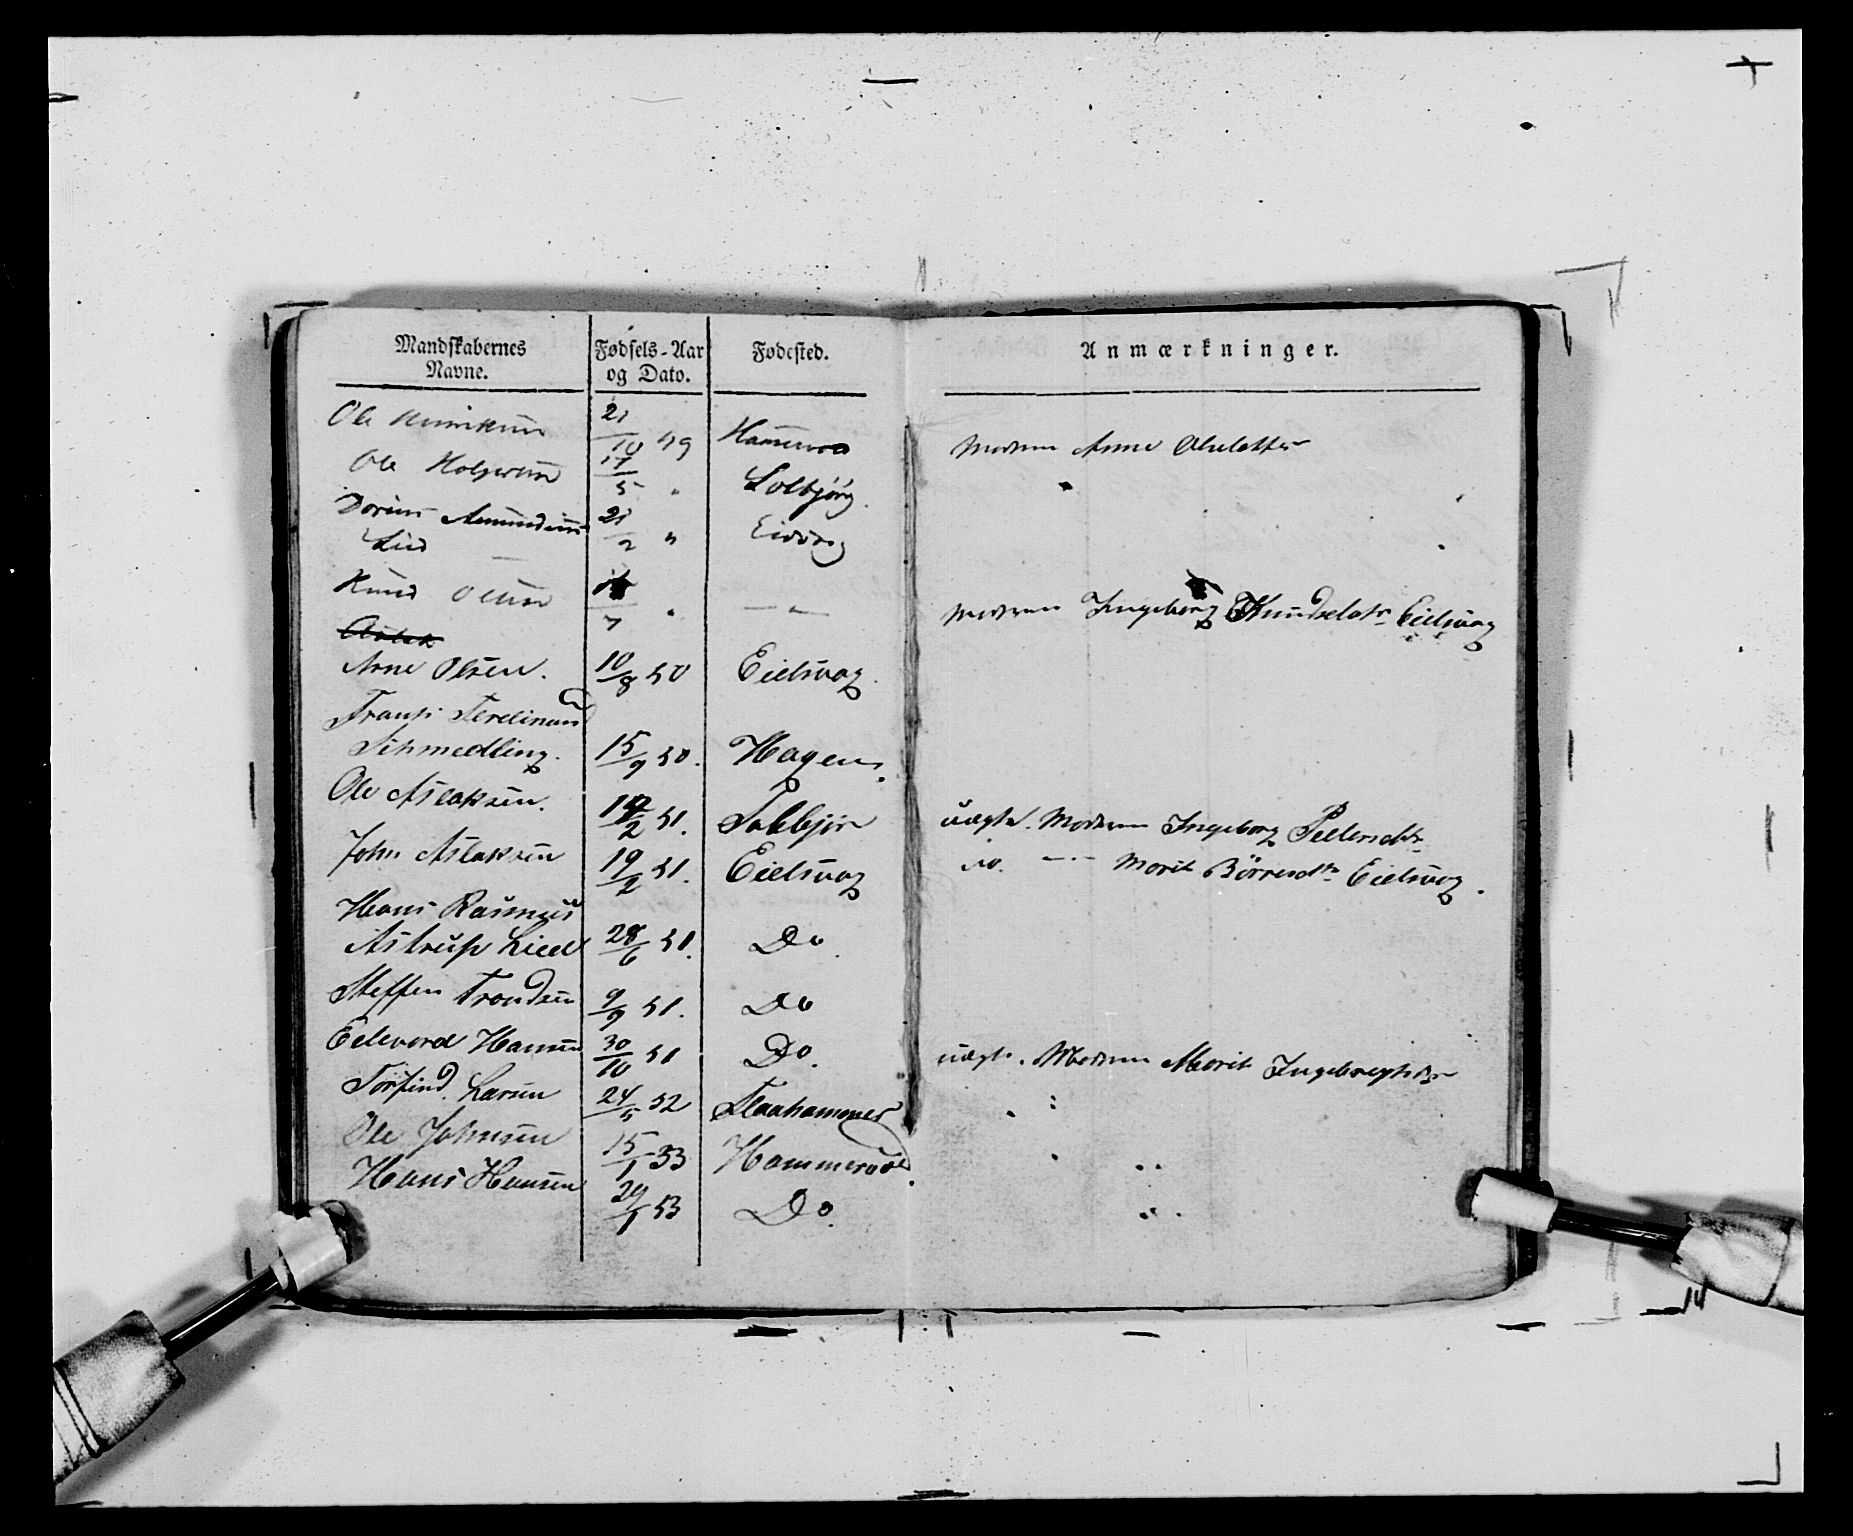 Mandskabernes Navne. Fødsels-Aar og Dato. Fødested. Anmærkninger.
Ole 21/10 49 Moderen Anne Olsdatter
Ole Holgersen 17/5 " Solbjørg.
Amundsen 21/2 " Eidsvog
Lied
Knud Olsen /7 " — " — Moderen Ingeborg Knudsdatr Eidsvog
Aslak
Arne Olsen. 10/8 50 Eidsvog.
Frants Ferdinand
Schmedling. 15/9 50. Hagen.
Ole Aslaksen. /2 51. Solbjør uægte. Moderen Ingeborg Pedersdtr
John Aslaksen 19/2 51. Eidsvog do. — " — Marit Börresdtr Eidsvog.
Hans Rasmus
Astrup Lied 28/6 51. Do.
Steffen Trondsen 9/9 51. Do
Edevard Hansen 30/10 51 Do. uægte. Moderen Marit
Torfind Larsen 24/5 52 Flaahammer
Ole Johnsen 15/1 53 Hammervold.
Hans Hansen 29/1 53 Do.
14